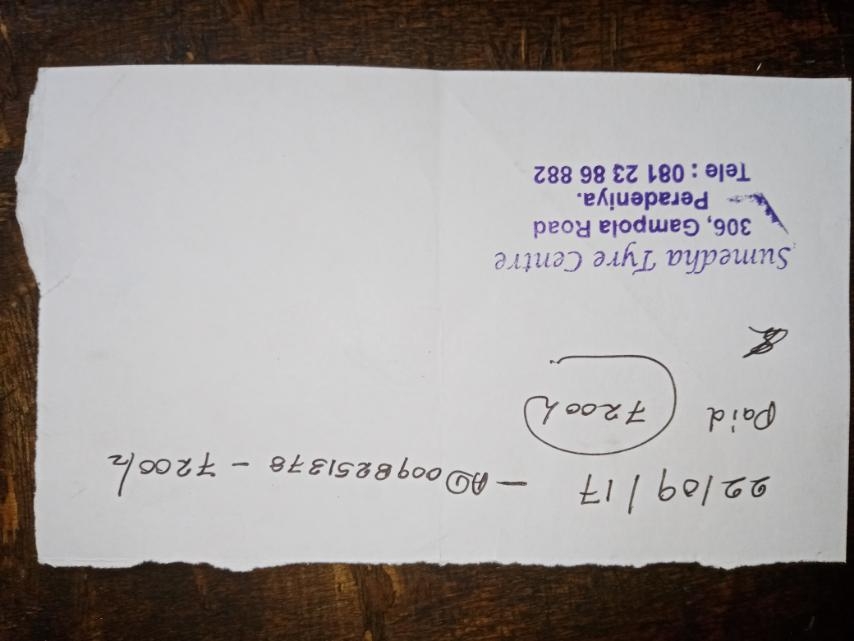 22/09/17 - 0098251378 - 7200/=
Paid 7200/=
Sumedha Tyre Centre
306, Gampola Road
Peradeniya.
Tele : 081 23 86 882